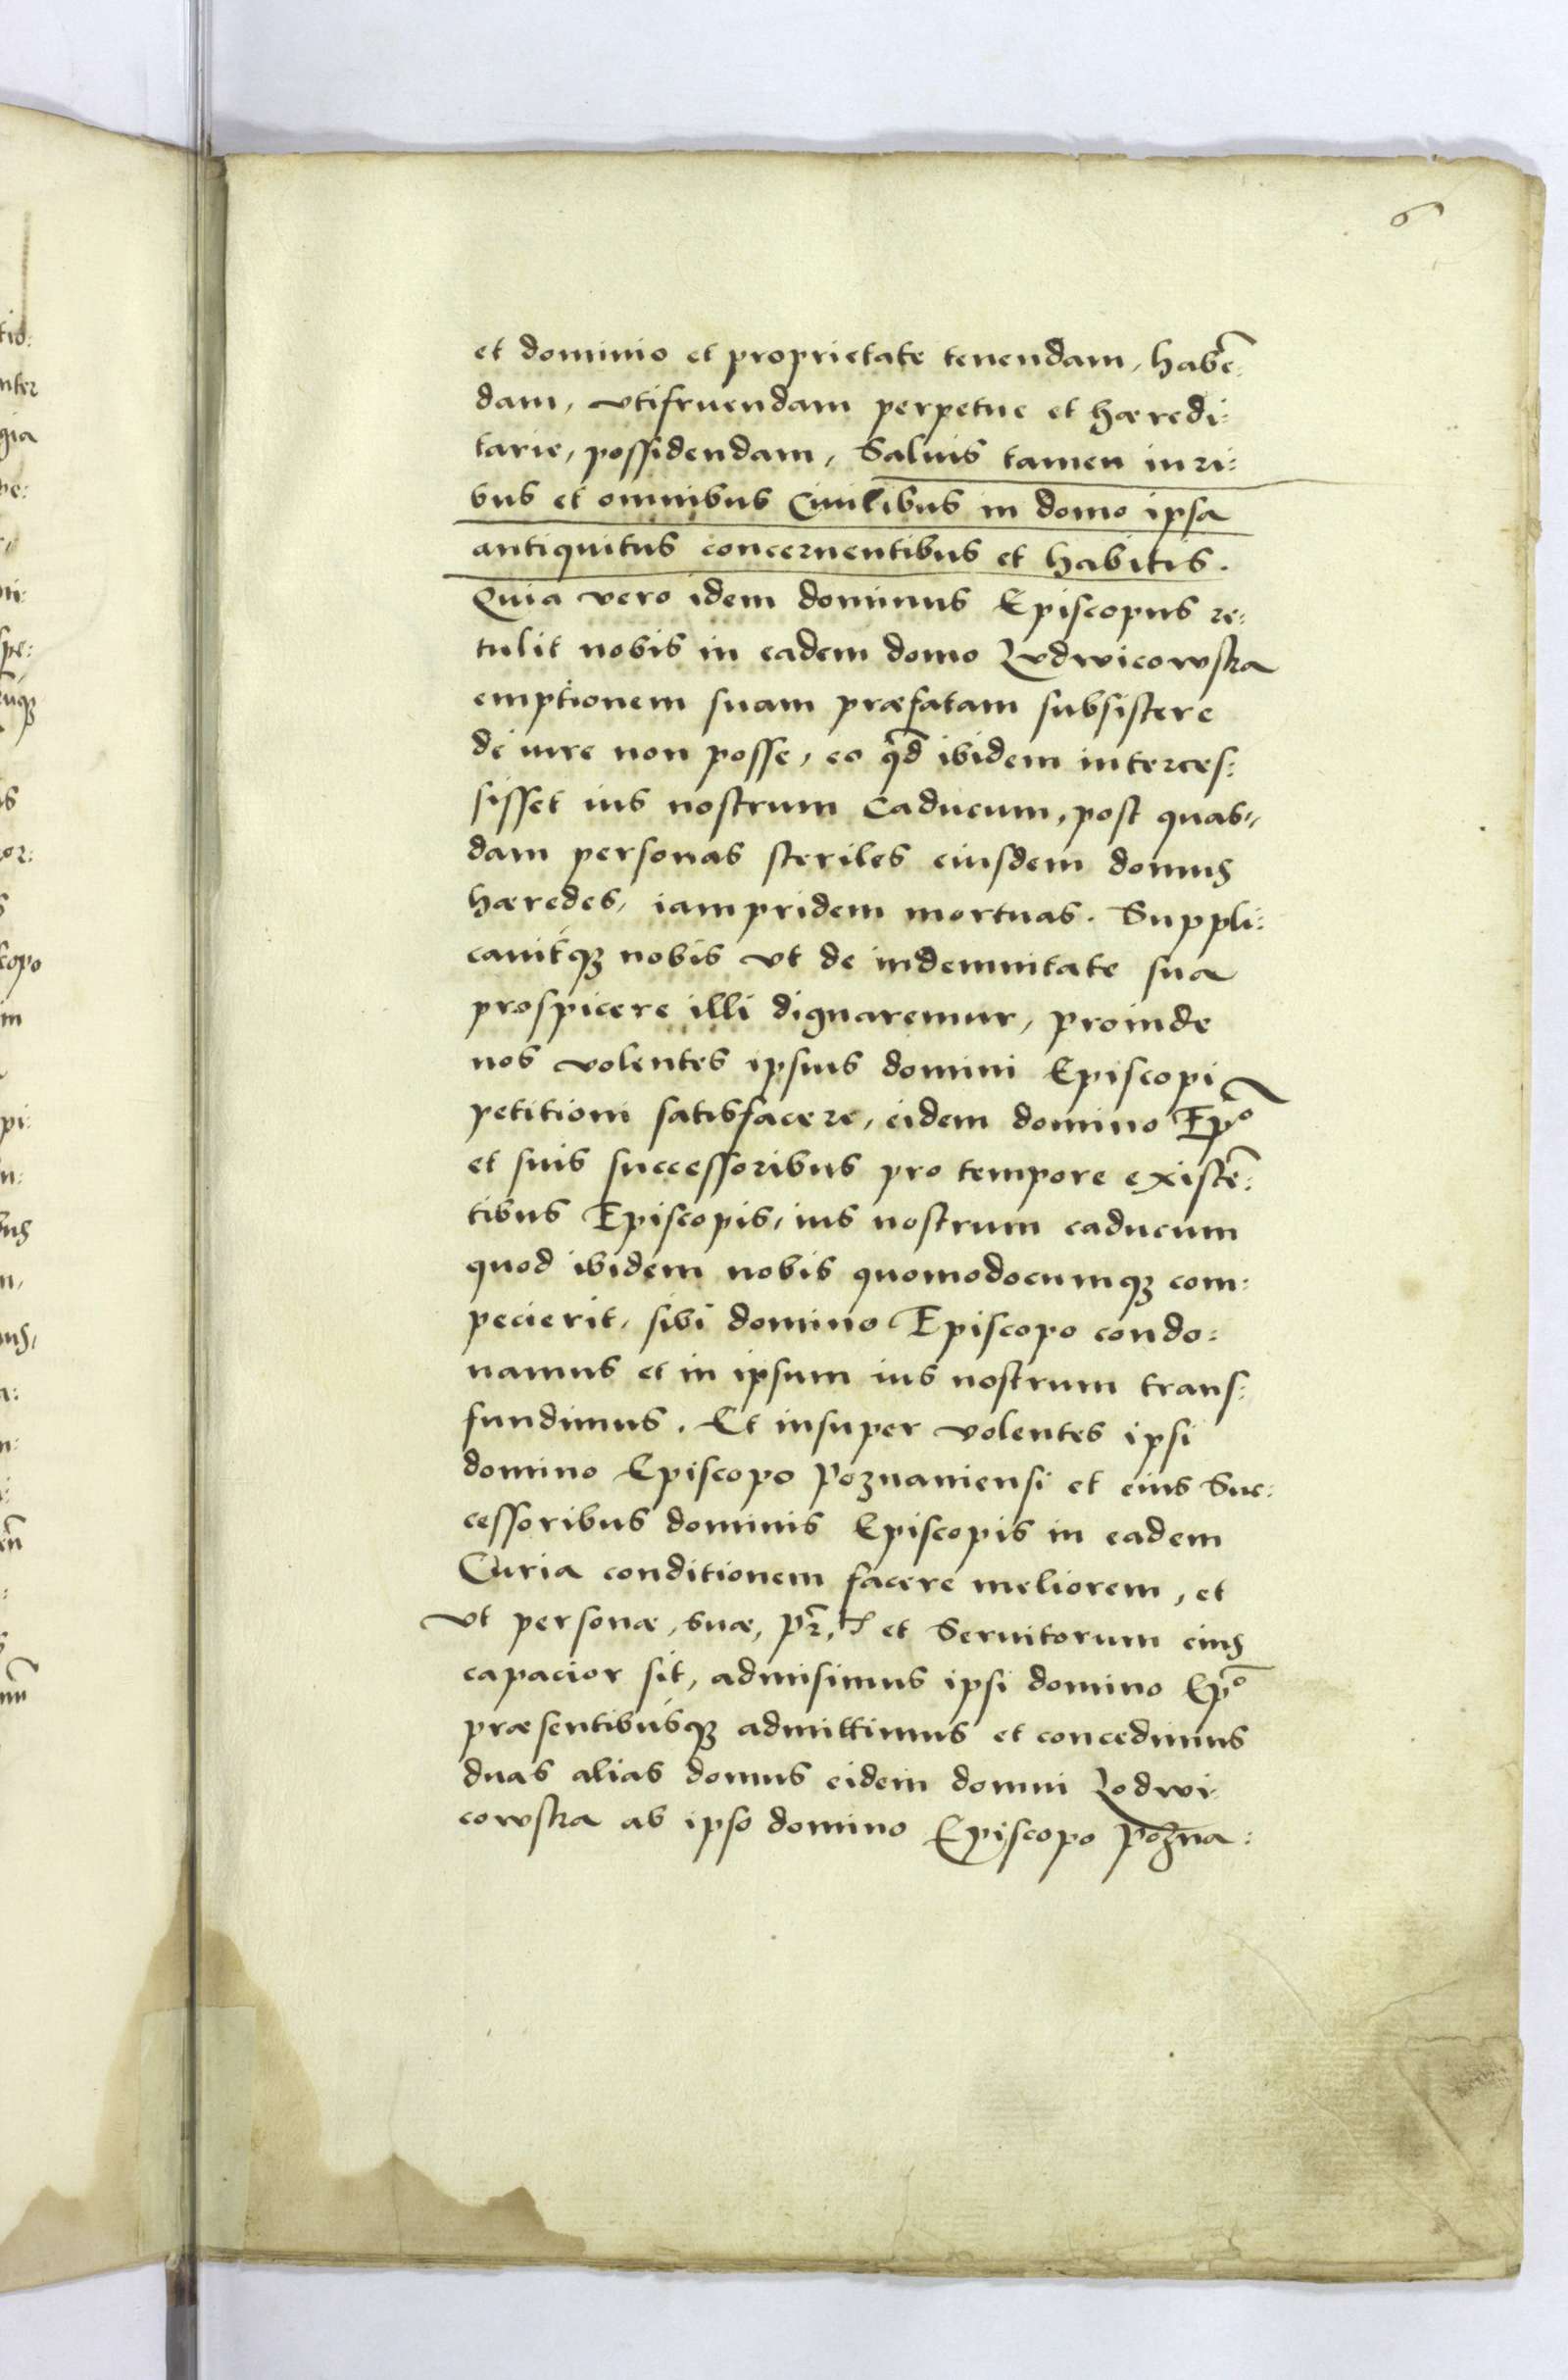 6
et dominio et proprietate tenendam, habē:
dam, vtifruendam perpetue et hæredi:
tarie, possidendam, Saluis tamen iuri:
bus et omnibus Ciuilibus in domo ipsa
antiquitus concernentibus et habitis.
Quia vero idem dominus Episcopus re:
tulit nobis in eadem domo Ludwicowska
emptionem suam præfatam subsistere
de iure non posse, eo qd̄ ibidem interces:
sisset ius nostrum Caducum, post quas:
dam personas steriles eiusdem domus
hæredes, iampridem mortuas. Suppli:
cauitqꝫ nobis vt de indemnitate sua
prospicere illi dignaremur, proinde
nos volentes ipsius domini Episcopi
petitioni satisfacere, eidem domino Ep̄o
et suis successoribus pro tempore existē:
tibus Episcopis, ius nostrum caducum
quod ibidem nobis quomodocumqꝫ com:
pecierit, sibi domino Episcopo condo:
namus et in ipsum ius nostrum trans:
fundimus. Et insuper volentes ipsi
domino Episcopo Poznaniensi et eius Suc:
cessoribus dominis Episcopis in eadem
Curia conditionem facere meliorem, et
vt personæ, suæ, et Seruitorum eius
capacior sit, admisimus ipsi domino Ep̄o
præsentibusqꝫ admittimus et concedimus
duas alias domus eidem domui Lodwi:
cowska ab ipso domino Episcopo Pozna: